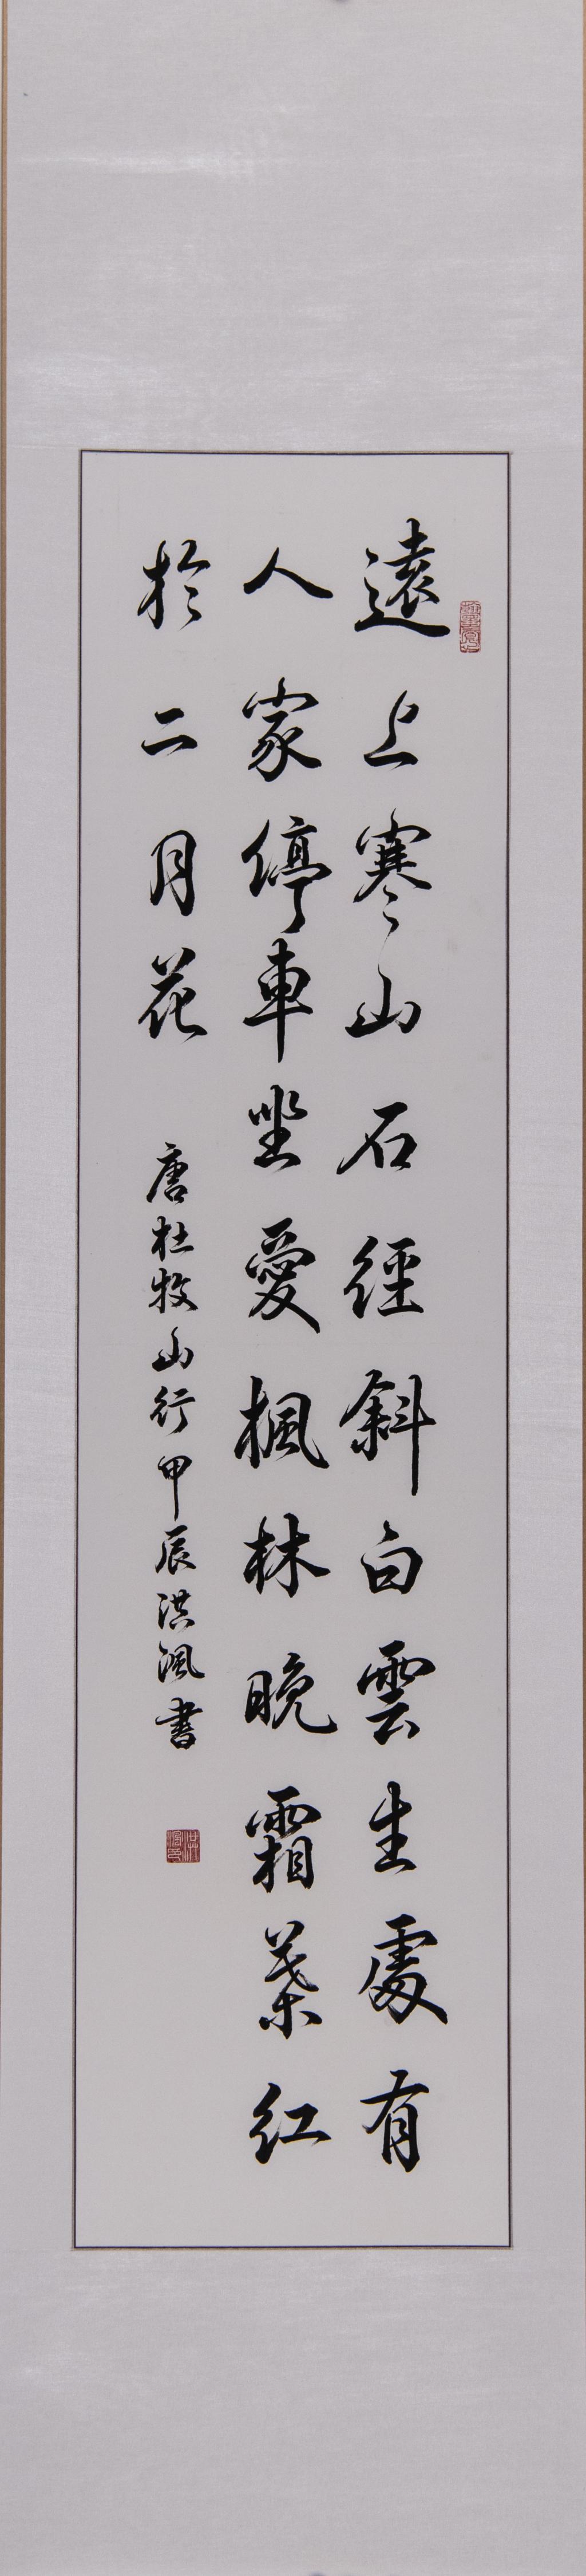 遠上寒山石徑斜白雲生處有
人家停車坐愛楓林晚霜葉紅
於二月花
唐杜牧山行甲辰洪渢書